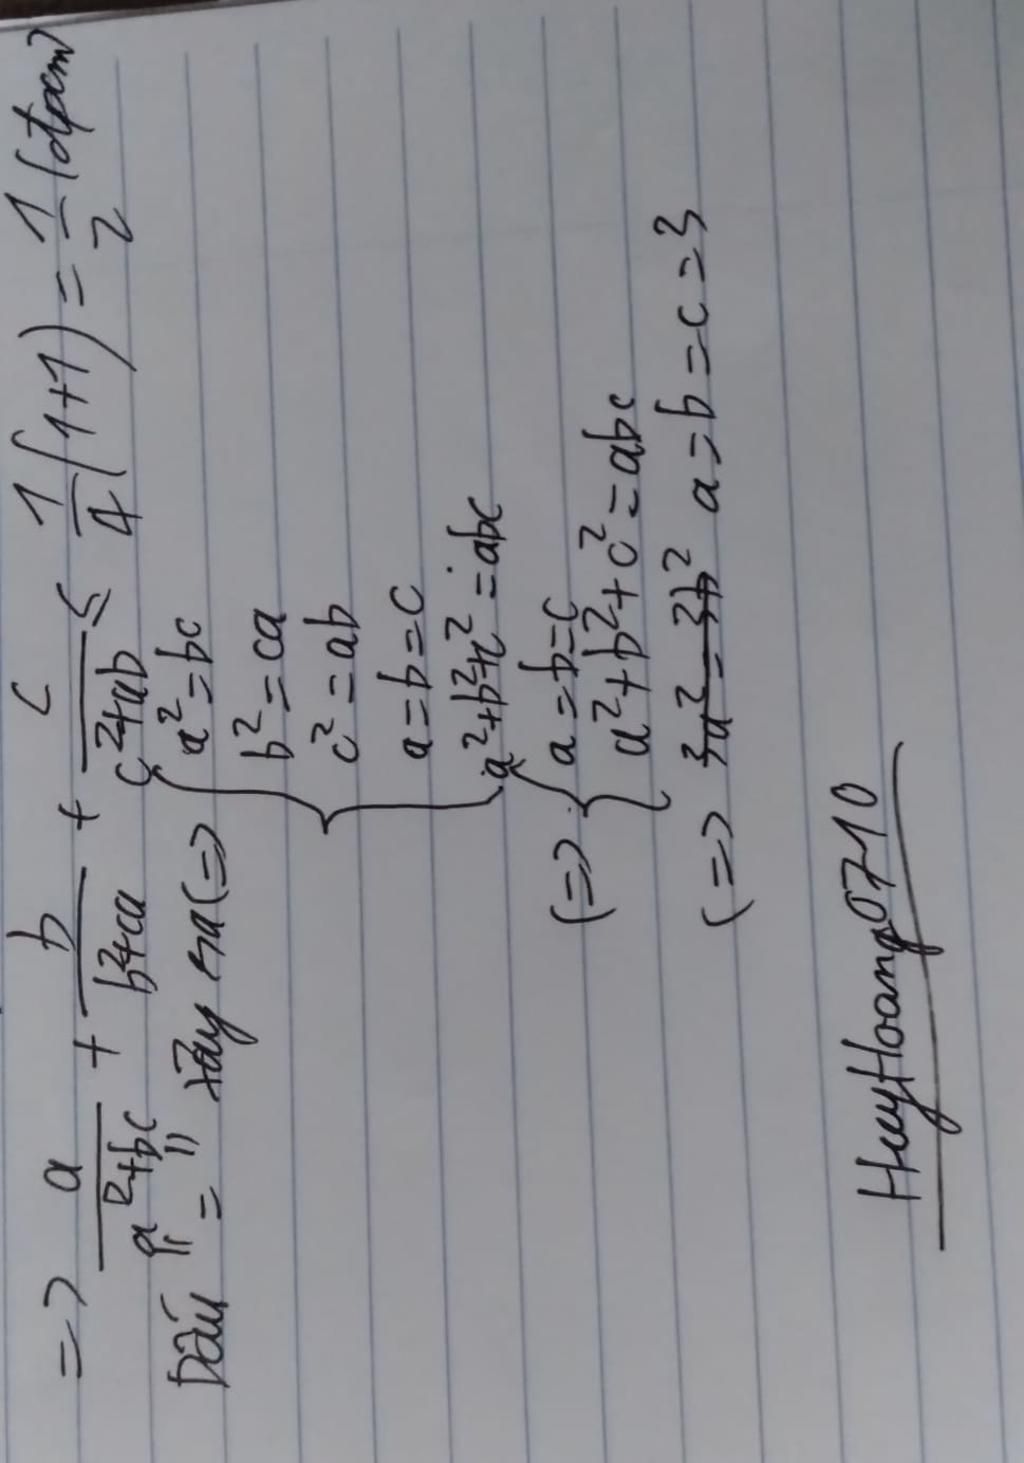 => a/(a²+bc) + b/(b²+ca) + c/(c²+ab) ≤ 1/4(1+1) = 1/2 (đpcm)
Dấu "=" xảy ra <=> { a² = bc
b² = ca
c² = ab
a = b = c
a²+b²+c² = abc
<=> { a = b = c
a²+b²+c² = abc
<=> a = b = c = 3
HuyHoang0710